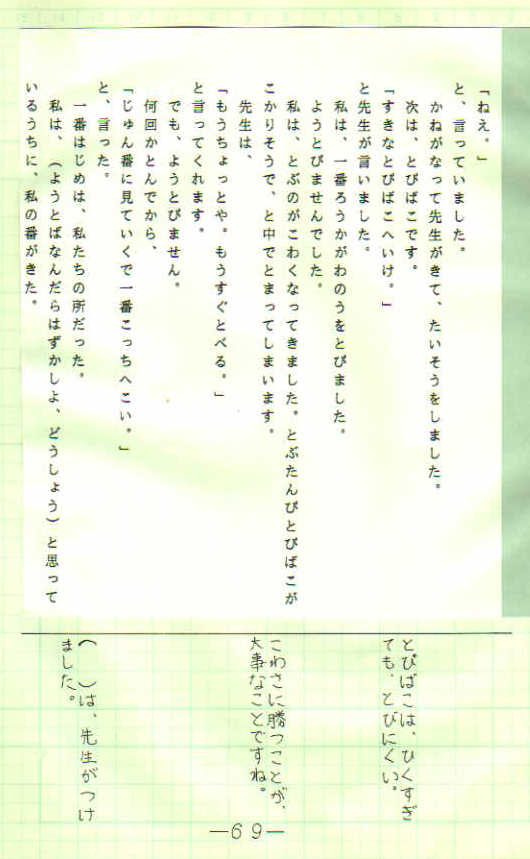 「ねえ。」
と、言っていました。
かねがなって先生がきて、たいそうをしました。
次は、とびばこです。
「すきなとびばこへいけ。」
と先生が言いました。
私は、一番ろうかがわのうをとびました。
ようとびませんでした。
私は、とぶのがこわくなってきました。とぶたんびとびばこが
こかりそうで、と中でとまってしまいます。
先生は、
「もうちょっとや。もうすぐとべる。」
と言ってくれます。
でも、ようとびません。
何回かとんでから、
「じゅん番に見ていくで一番こっちへこい。」
と、言った。
一番はじめは、私たちの所だった。
私は、（ようとばなんだらはずかしよ、どうしょう）と思って
いるうちに、私の番がきた。
とびばこは、ひくすぎ
ても、とびにくい。
こわさに勝つことが、
大事なことですね。
（　）は、先生がつけ
ました。
—69—